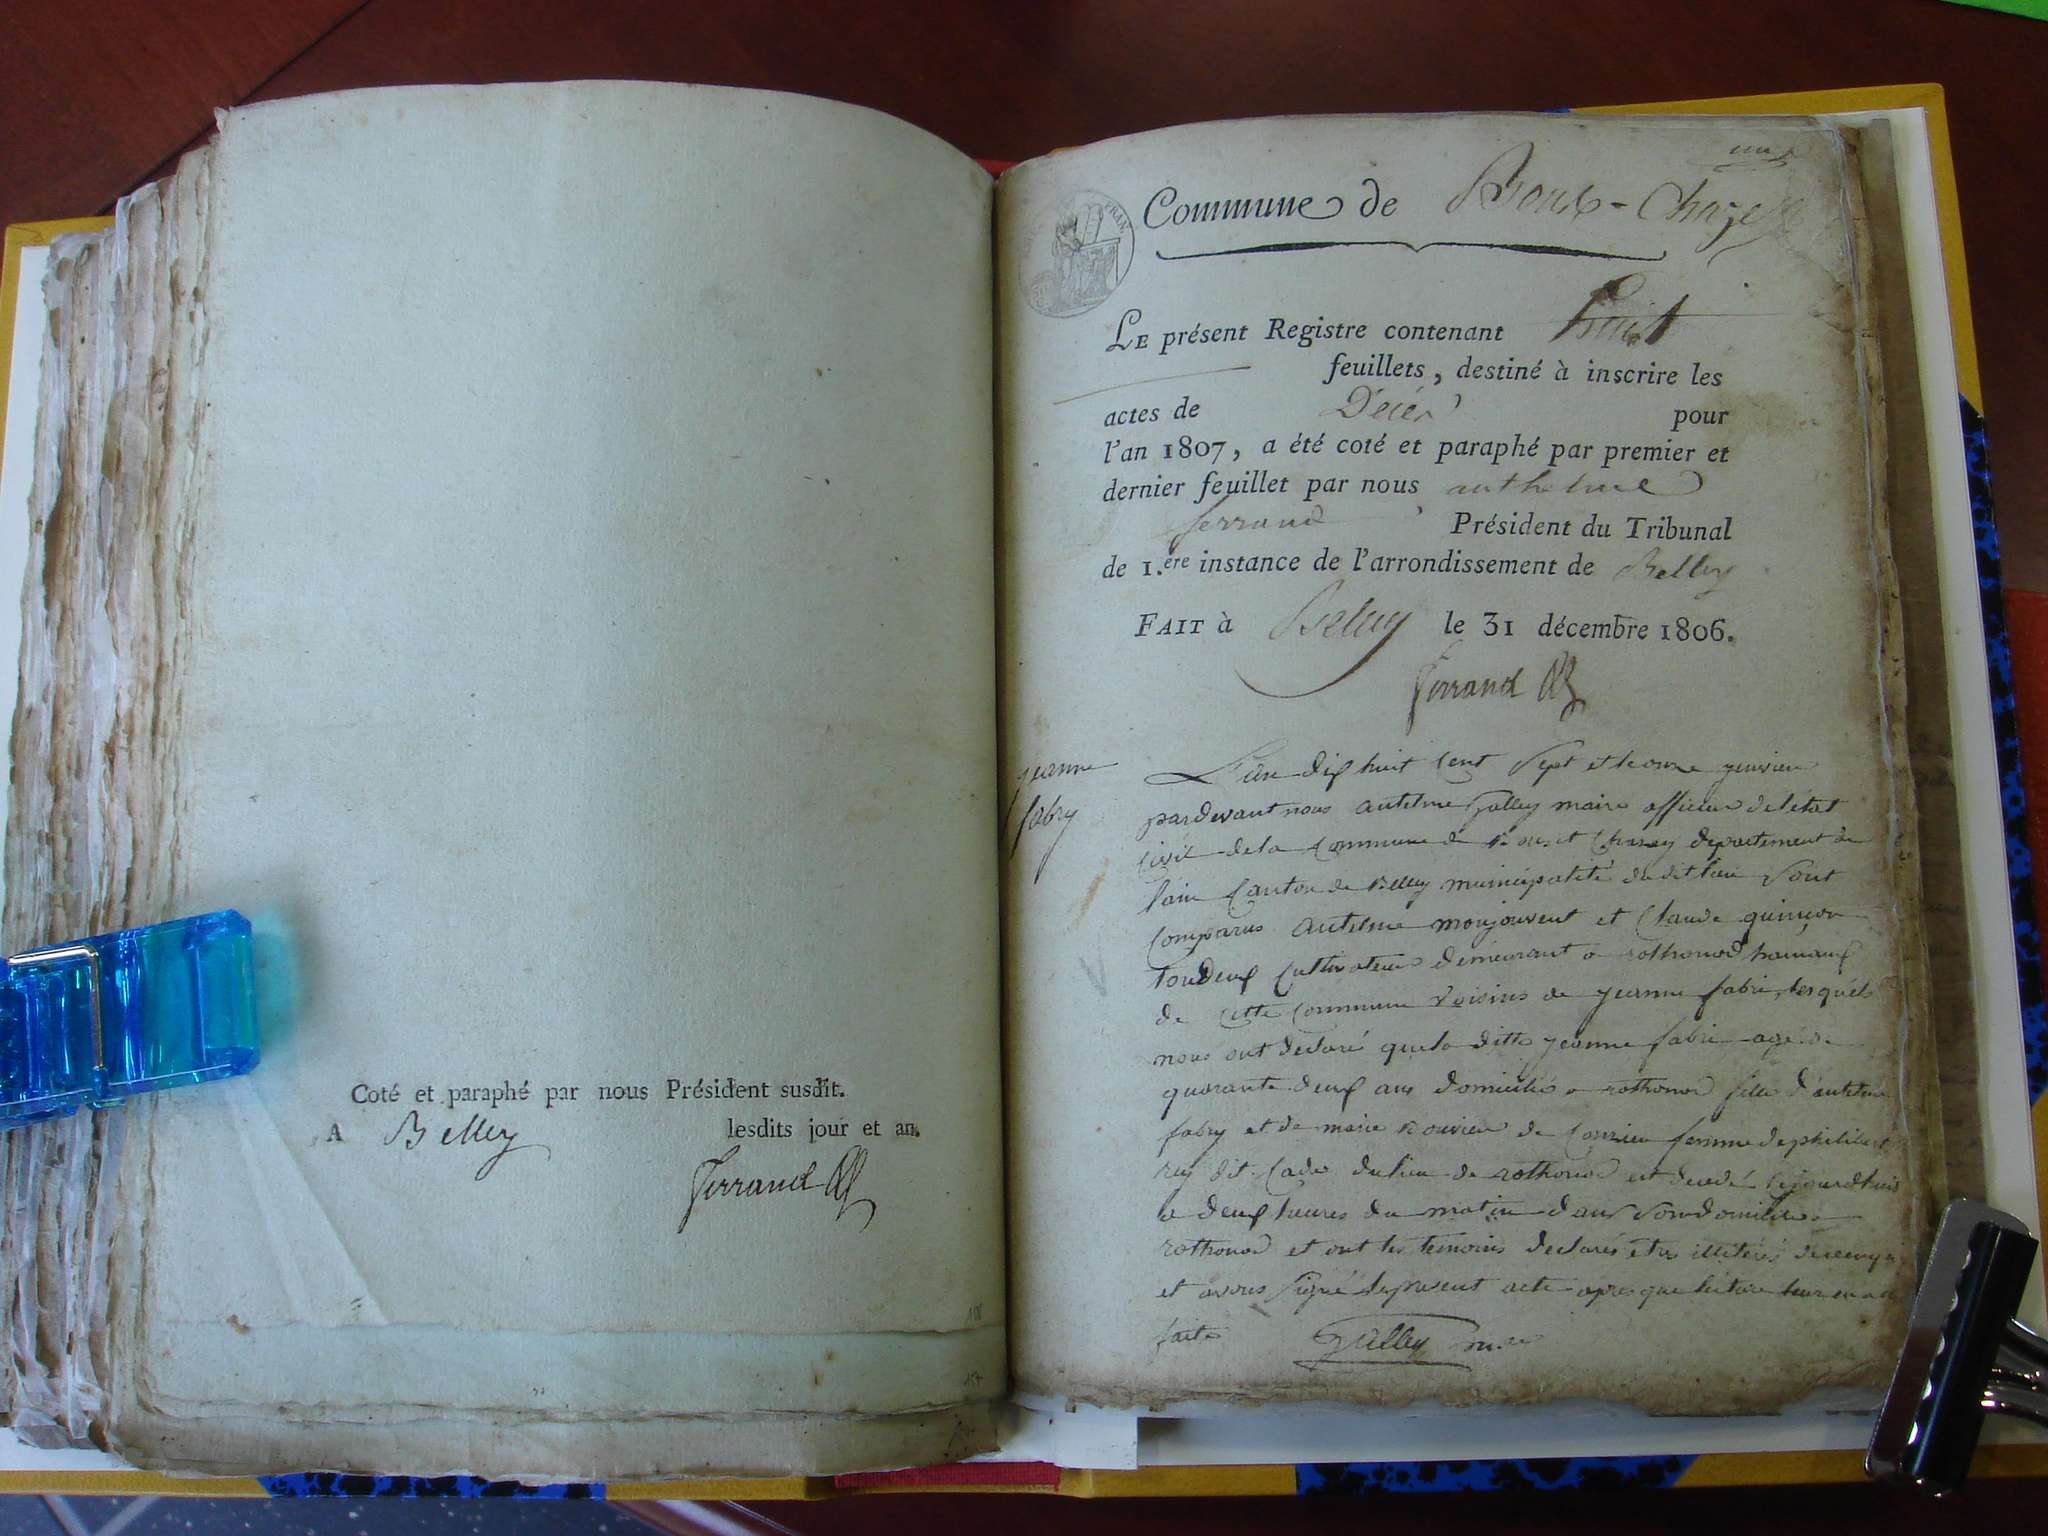 Coté et paraphé par nous Président susdit.
A Belley lesdits jour et an.
Ferrand
Commune de
LE présent Registre contenant huit
feuillets, destiné à inscrire les
actes de Décés pour
l'an 1807, a été coté et paraphé par premier et
dernier feuillet par nous anthelme
ferrand Président du Tribunal
de 1.ere instance de l'arrondissement de Belley
FAIT à Belley le 31 décembre 1806.
Ferrand
jeanne
fabry
L'an dix huit cent sept et le onze
pardevant nous antelme Gulley maire officier de l'état
civil de la commune de département de
l'ain canton de Belley municipalité du dit lieu sont
comparus antelme monjouvent et claude quinson
tou deux cultivateurs demeurant a rothonod hamaux
de cette commune voisins de jeanne fabri, lesquels
nous ont declaré que la ditte jeanne fabri agé de
quarante deux ans domicilié a rothonod fille d'antelme
fabry et de marie de femme de philibert
rey dit du lieu de rothonod est decedé cejourdhuis
a deux heures du matin dans son domicile a
rothonod et ont les temoins declarés etre illiterés
et avons signé le present acte apres que lecture leur en a été
faite Gulley